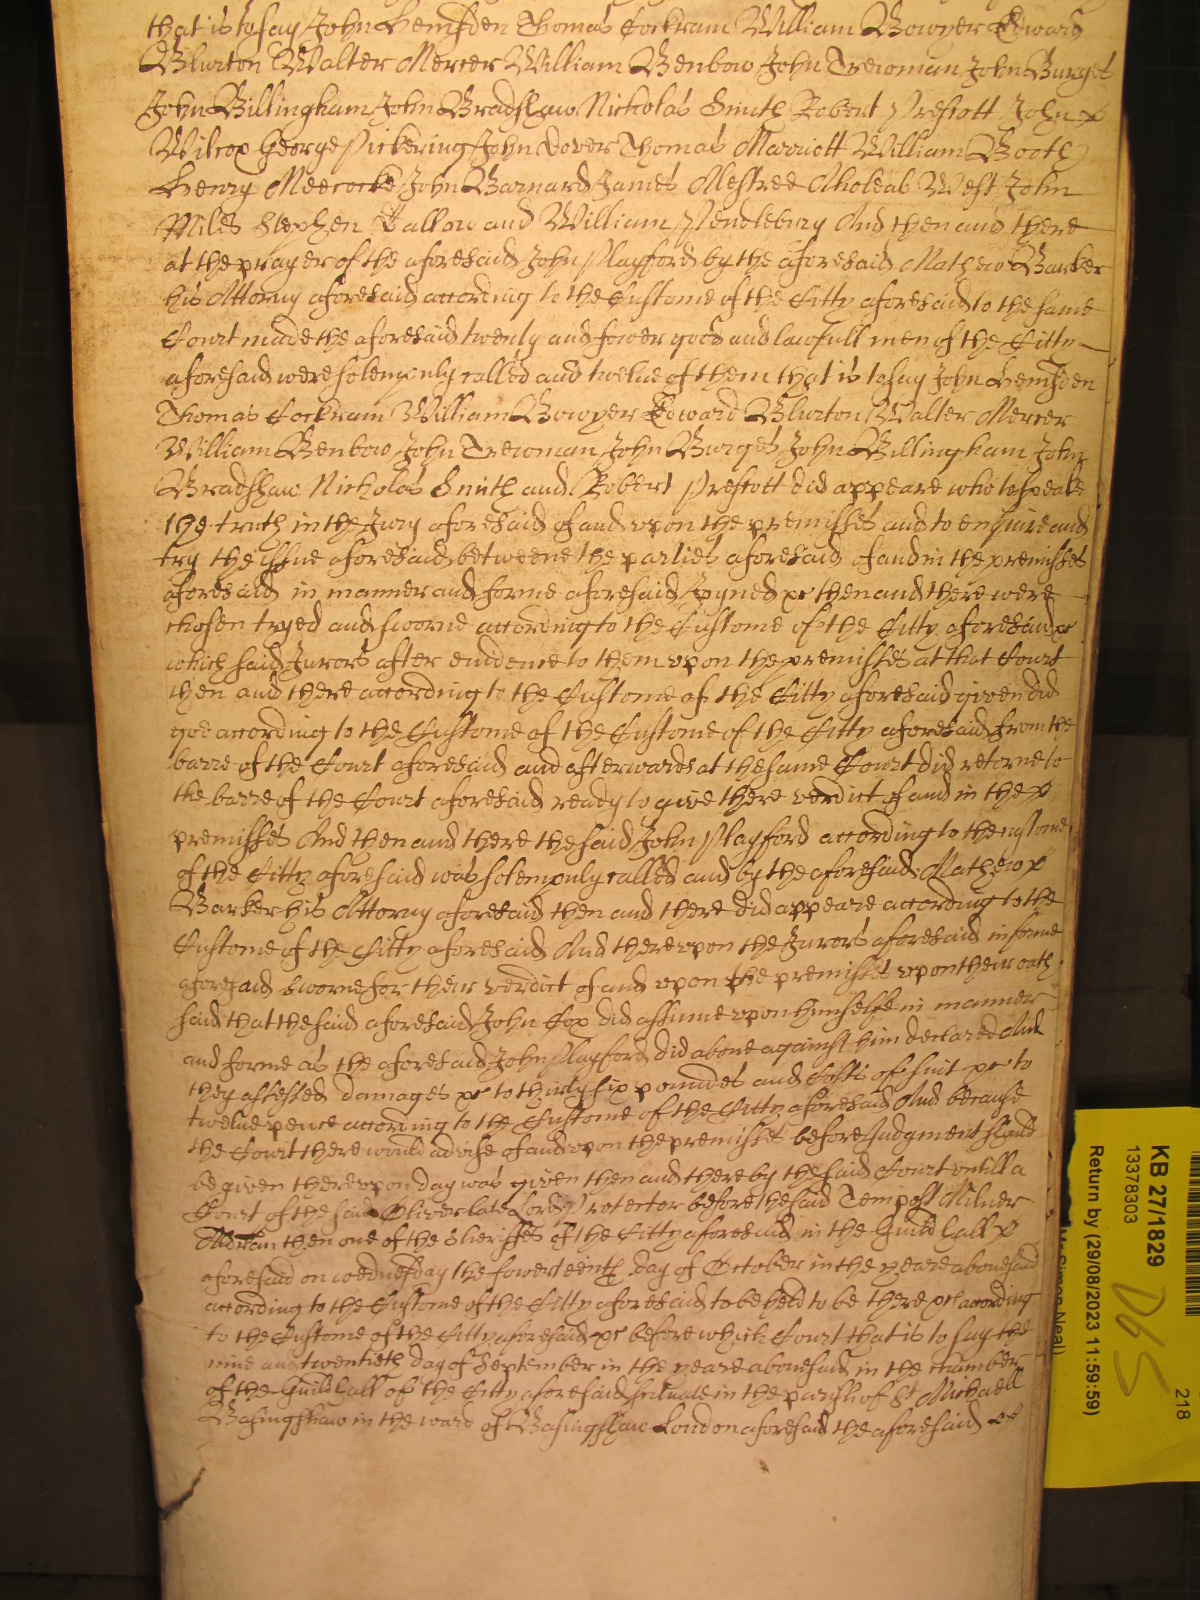 that is to say John Hemsden Thomas Cockram William Bowyer Edward
Blurton Walter Mercer William Benbow John Trewman John Burges
John Billingham John Bradshaw Nicholas Smith Robert Prescott John
Wilcox George Pickering John Dover Thomas Marriott William Booth
Henry Meecocke John Barnard James Mestree Aholeab West John
Miles Stephen Tallow and William Pendlebury And then and there
at the prayer of the aforesaid John Playford by the aforesaid Mathew Barker
his Attorny aforesaid according to the Custome of the Citty aforesaid to the same
Court made the aforesaid twenty and fower good and lawfull men of the Citty
aforesaid were solempnly called and twelve of them that is to say John Hemsden
Thomas Cockram William Bowyer Edward Blurton Walter Mercer
William Benbow John Trewman John Burges John Billingham John
Bradshaw Nicholas Smith and Robert Prescott did appeare who to speake
the truth in the Jury aforesaid of and upon the premisses and to enquire and
try the issue aforesaid betweene the parties aforesaid of and in the premisses
aforesaid in manner and forme aforesaid Joyned &c then and there were
chosen tryed and sworne according to the Custome of the Citty aforesaid &c
which said Jurors after evidence to them upon the premisses at that Court
then and there according to the Custome of the Citty aforesaid given did
goe according to the Custome of the Custome of the Citty aforesaid from the
barre of the Court aforesaid and afterwards at the same Court did retorne to
the barre of the Court aforesaid ready to give there verdict of and in the
premisses And then and there the said John Playford according to the custome
of the Citty aforesaid was solempnly called and by the aforesaid Mathew
Barker his Attorny aforesaid then and there did appeare according to the
Custome of the Citty aforesaid And thereupon the Jurors aforesaid in forme
aforesaid sworne for their verdict of and upon the premisses upon their oath
said that the said aforesaid John Cox did assume upon himselfe in manner
and forme as the aforesaid John Playford did above against him declared And
they assessed damages &c to thirty six poundes and Costs of suit &c to
twelve pence according to the Custome of the Citty aforesaid And because
the Court there would advise of and upon the premisses before Judgment should
be given thereupon day was given then and there by the said Court untill a
Court of the said Oliver late Lord Protector before the said Tempest Milner
Alderman then one of the Sheriffes of the Citty aforesaid in the Guildhall
aforesaid on wednesday the fowerteenth day of October in the yeare abovesaid
according to the Custome of the Citty aforesaid to be held to be there &c according
to the Custome of the Citty aforesaid &c before which Court that is to say the
nine and twentieth day of September in the yeare abovesaid in the chamber
of the Guildhall of the Citty aforesaid scituate in the parish of St Michaell
Basingshaw in the ward of Basingshaw London aforesaid the aforesaid
KB 27/1829
13378303
Return by (29/08/2023 11:59:59)
218